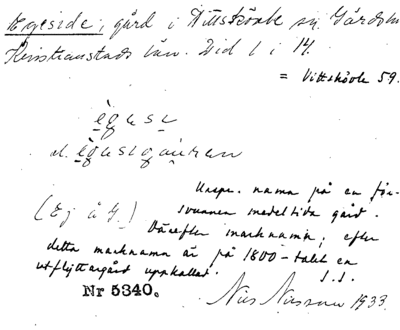 Egeside, gård i Vittskövle sn, Gärds hd
Kristianstads län. Vid l i 14.
= Vittskövle 59.
ègese
el. ègesegåuren
Urspr. namn på en för-
(Ej å K.) svunnen medeltida gård.
Därefter marknamn; efter
detta marknamn är på 1800-talet en
utflyttargård uppkallad.
I. I.
Nr 5340. Nils Nilsson 1933.